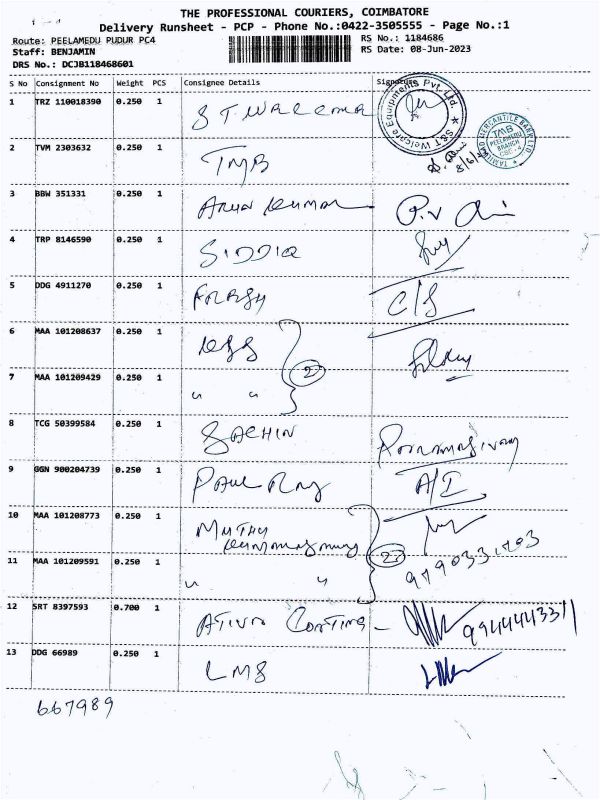 THE PROFESSIONAL COURIERS, COIMBATORE
Delivery Runsheet - PCP - Phone No.:0422-3505555 - Page No.:1
Route: PEELAMEDU PUDUR PC4
RS No.: 1184686
Staff: BENJAMIN
RS Date: 08-Jun-2023
DRS No.: DCJB118468601
S No Consignment No Weight PCS Consignee Details Signature
1 TRZ 110018390 0.250 1 ST. WELCOME
S&T Welcare Equipments Pvt. Ltd.
8/6/23
TAMILNAD MERCANTILE BANK LTD.
TMB
PEELAMEDU
BRANCH
CBE-4
2 TVM 2303632 0.250 1 TMB
3 BBW 351331 0.250 1 ARUN KUMAR P.V
4 TRP 8146590 0.250 1 SIDDIQ
5 DDG 4911270 0.250 1 C/S
6 MAA 101208637 0.250 1 KGS
2
7 MAA 101209429 0.250 1 " "
8 TCG 50399584 0.250 1 SACHIN
9 GGN 900204739 0.250 1 PAUL RAJ A/I
10 MAA 101208773 0.250 1 MUTHU
2
11 MAA 101209591 0.250 1 " "
12 SRT 8397593 0.700 1 COATING - 9944443311
13 DDG 66989 0.250 1 LMS
667989